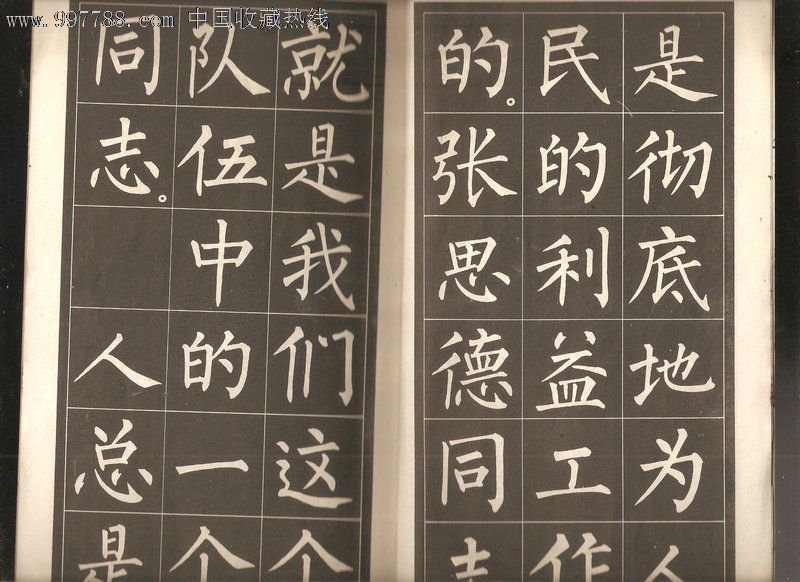 www.997788.com 中国收藏热线
是彻底地为人
民的利益工作
的。张思德同志
就是我们这个
队伍中的一个
同志。
人总是